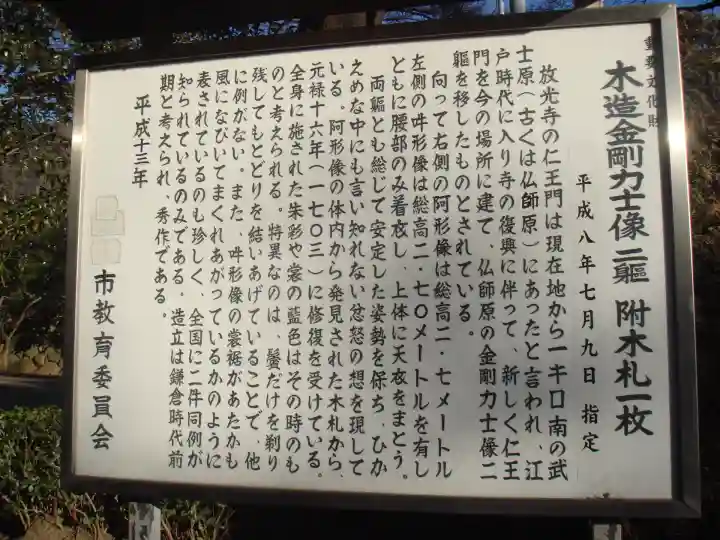 重要文化財
木造金剛力士像二軀 附木札一枚
平成八年七月九日 指定
放光寺の仁王門は現在地から一キロ南の武
士原(古くは仏師原)にあったと言われ、江
戸時代に入り寺の復興に伴って、新しく仁王
門を今の場所に建て、仏師原の金剛力士像二
軀を移したものとされている。
向って右側の阿形像は総高二・七メートル
左側の吽形像は総高二・七〇メートルを有し
ともに腰部のみ着衣し、上体に天衣をまとう。
両軀とも総じて安定した姿勢を保ち、ひか
えめな中にも言い知れない忿怒の想を現して
いる。阿形像の体内から発見された木札から、
元禄十六年(一七〇三)に修復を受けている。
全身に施された朱彩や裳の藍色はその時のも
のと考えられる。特異なのは、鬢だけを剃り
残してもとどりを結いあげていることで、他
に例がない。また、吽形像の裳裾があたかも
風になびいてまくれあがっているかのように
表されているのも珍しく、全国に二件同例が
知られているのみである。造立は鎌倉時代前
期と考えられ、秀作である。
平成十三年
市教育委員会